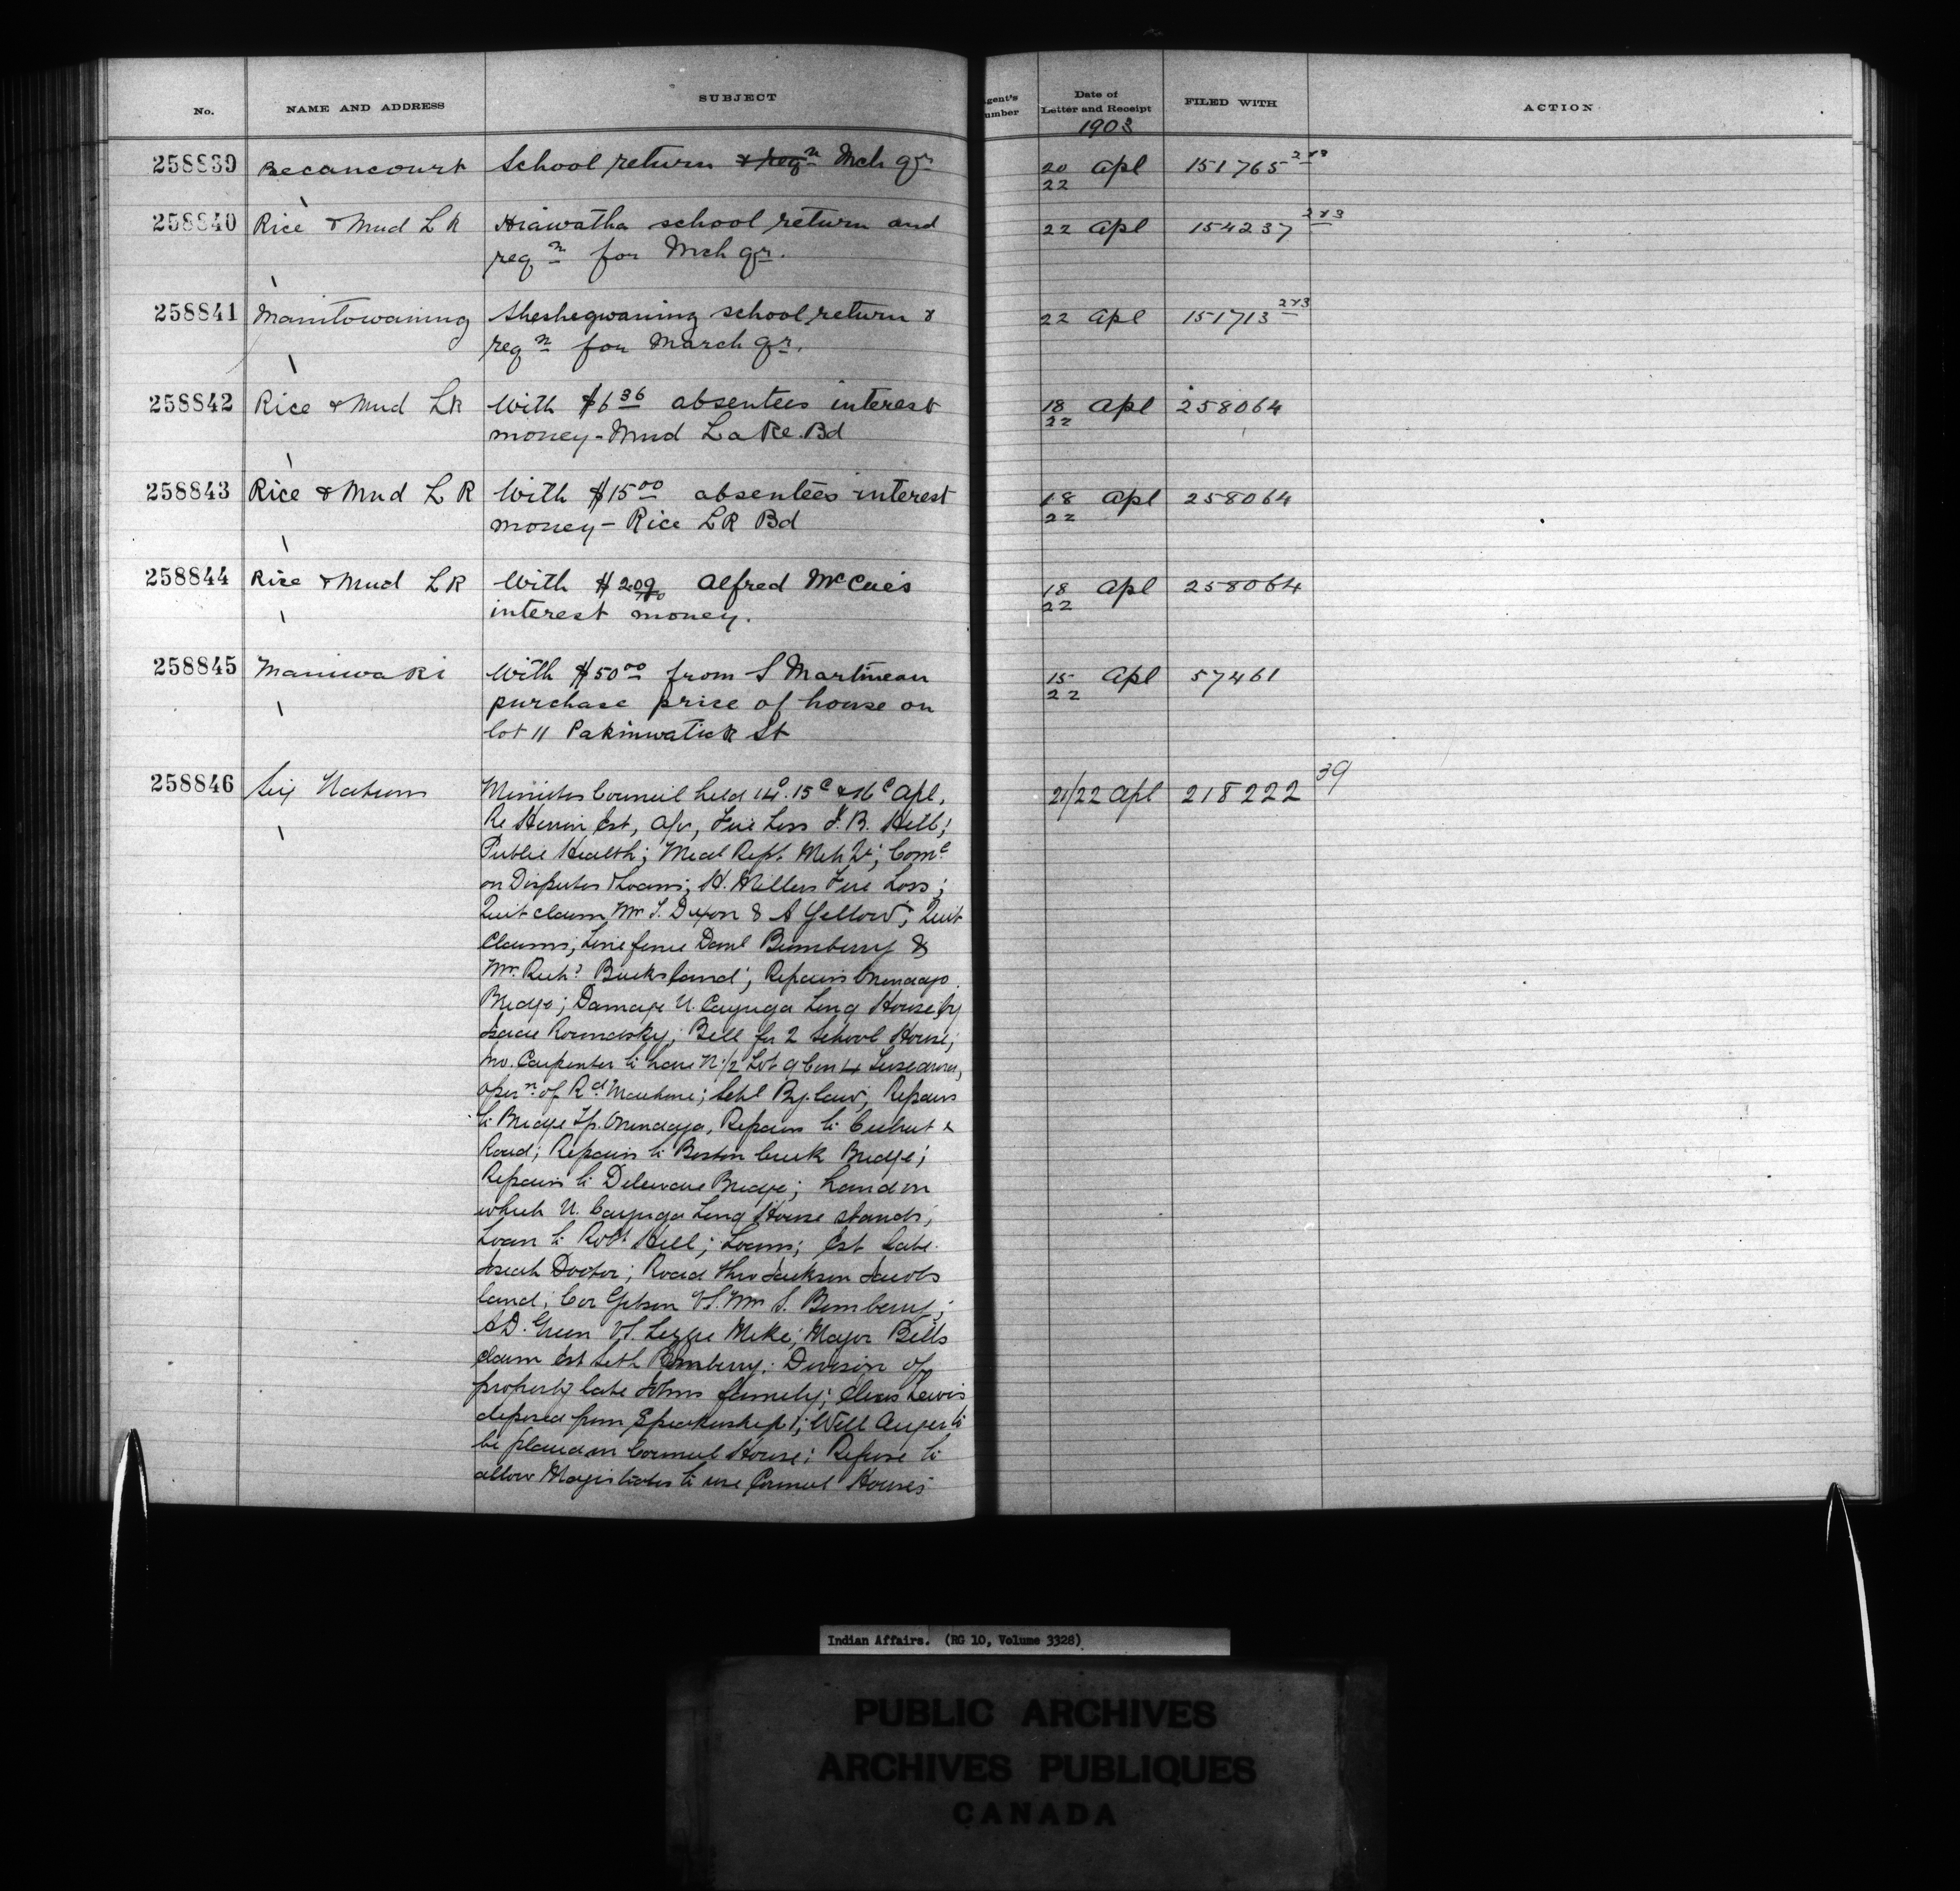 No. NAME AND ADDRESS SUBJECT
258839 Becancourt School return & reqn Mch qr
258840 Rice & Mud L R Hiawatha school return and
reqn for Mch qr.
258841 Manitowaning Sheshegwaning school return &
reqn for March qr.
258842 Rice & Mud LR With $6 36 absentees interest
money - Mud Lake Bd
258843 Rice & Mud L R With $15 00 absentees interest
money - Rice LR Bd
258844 Rice & Mud LR With $2.09 Alfred McCue's
interest money.
258845 Maniwaki With $50 00 from S Martineau
purchase price of house on
lot 11 Pakinwatick St
258846 Six Nations Minutes Council held 14e. 15e & 16e Apl,
Re Est, Fire Loss J. B. Hill;
Public Health; Medl Rept. Mch Comee
on Disputes & Loans; H. Millers Fire Loss;
Quit claim Wm S. Dixon & A Yellow; Quit
Claims; Line fence Danl Bumberry &
Mr. Richd Bucks land; Repairs Onondaga
Bridge; Damage U. Cayuga Long House by
Isaac Roundsky; Bell for 2 School House;
Jno. Carpenter to have N 1/2 Lot 9 Con 4 Tuscarora,
opern of Rd Machine; Schl By-law; Repairs
to Bridge Tp. Onondaga, Repairs to Culvert &
Road; Repairs to Boston Creek Bridge;
Repairs to Delaware Bridge; Land on
which U. Cayuga Long House stands;
Loan to Robt Hill; Loans; Est late
Josiah Doctor; Road thro Jackson Jacobs
land; Gibson VS. Wm S. Bomberry;
A D. Green VS. Lizzie Mike; Major Bills
claim Est Seth Bomberry; Division of
property late Johns family; Lewis
deposed from Speakership; Well Auger to
be placed in Council House; Refuse to
allow Magistrates to use Council House;
Agent's Number Date of Letter and Receipt FILED WITH ACTION
1903
20 22 Apl 151765
22 Apl 154237 2&3
22 Apl 151713 2&3
18 22 Apl 258064
18 22 Apl 258064
18 22 Apl 258064
15 22 Apl 57461
21/22 Apl 218222 39
Indian Affairs. (RG 10, Volume 3328)
PUBLIC ARCHIVES
ARCHIVES PUBLIQUES
CANADA